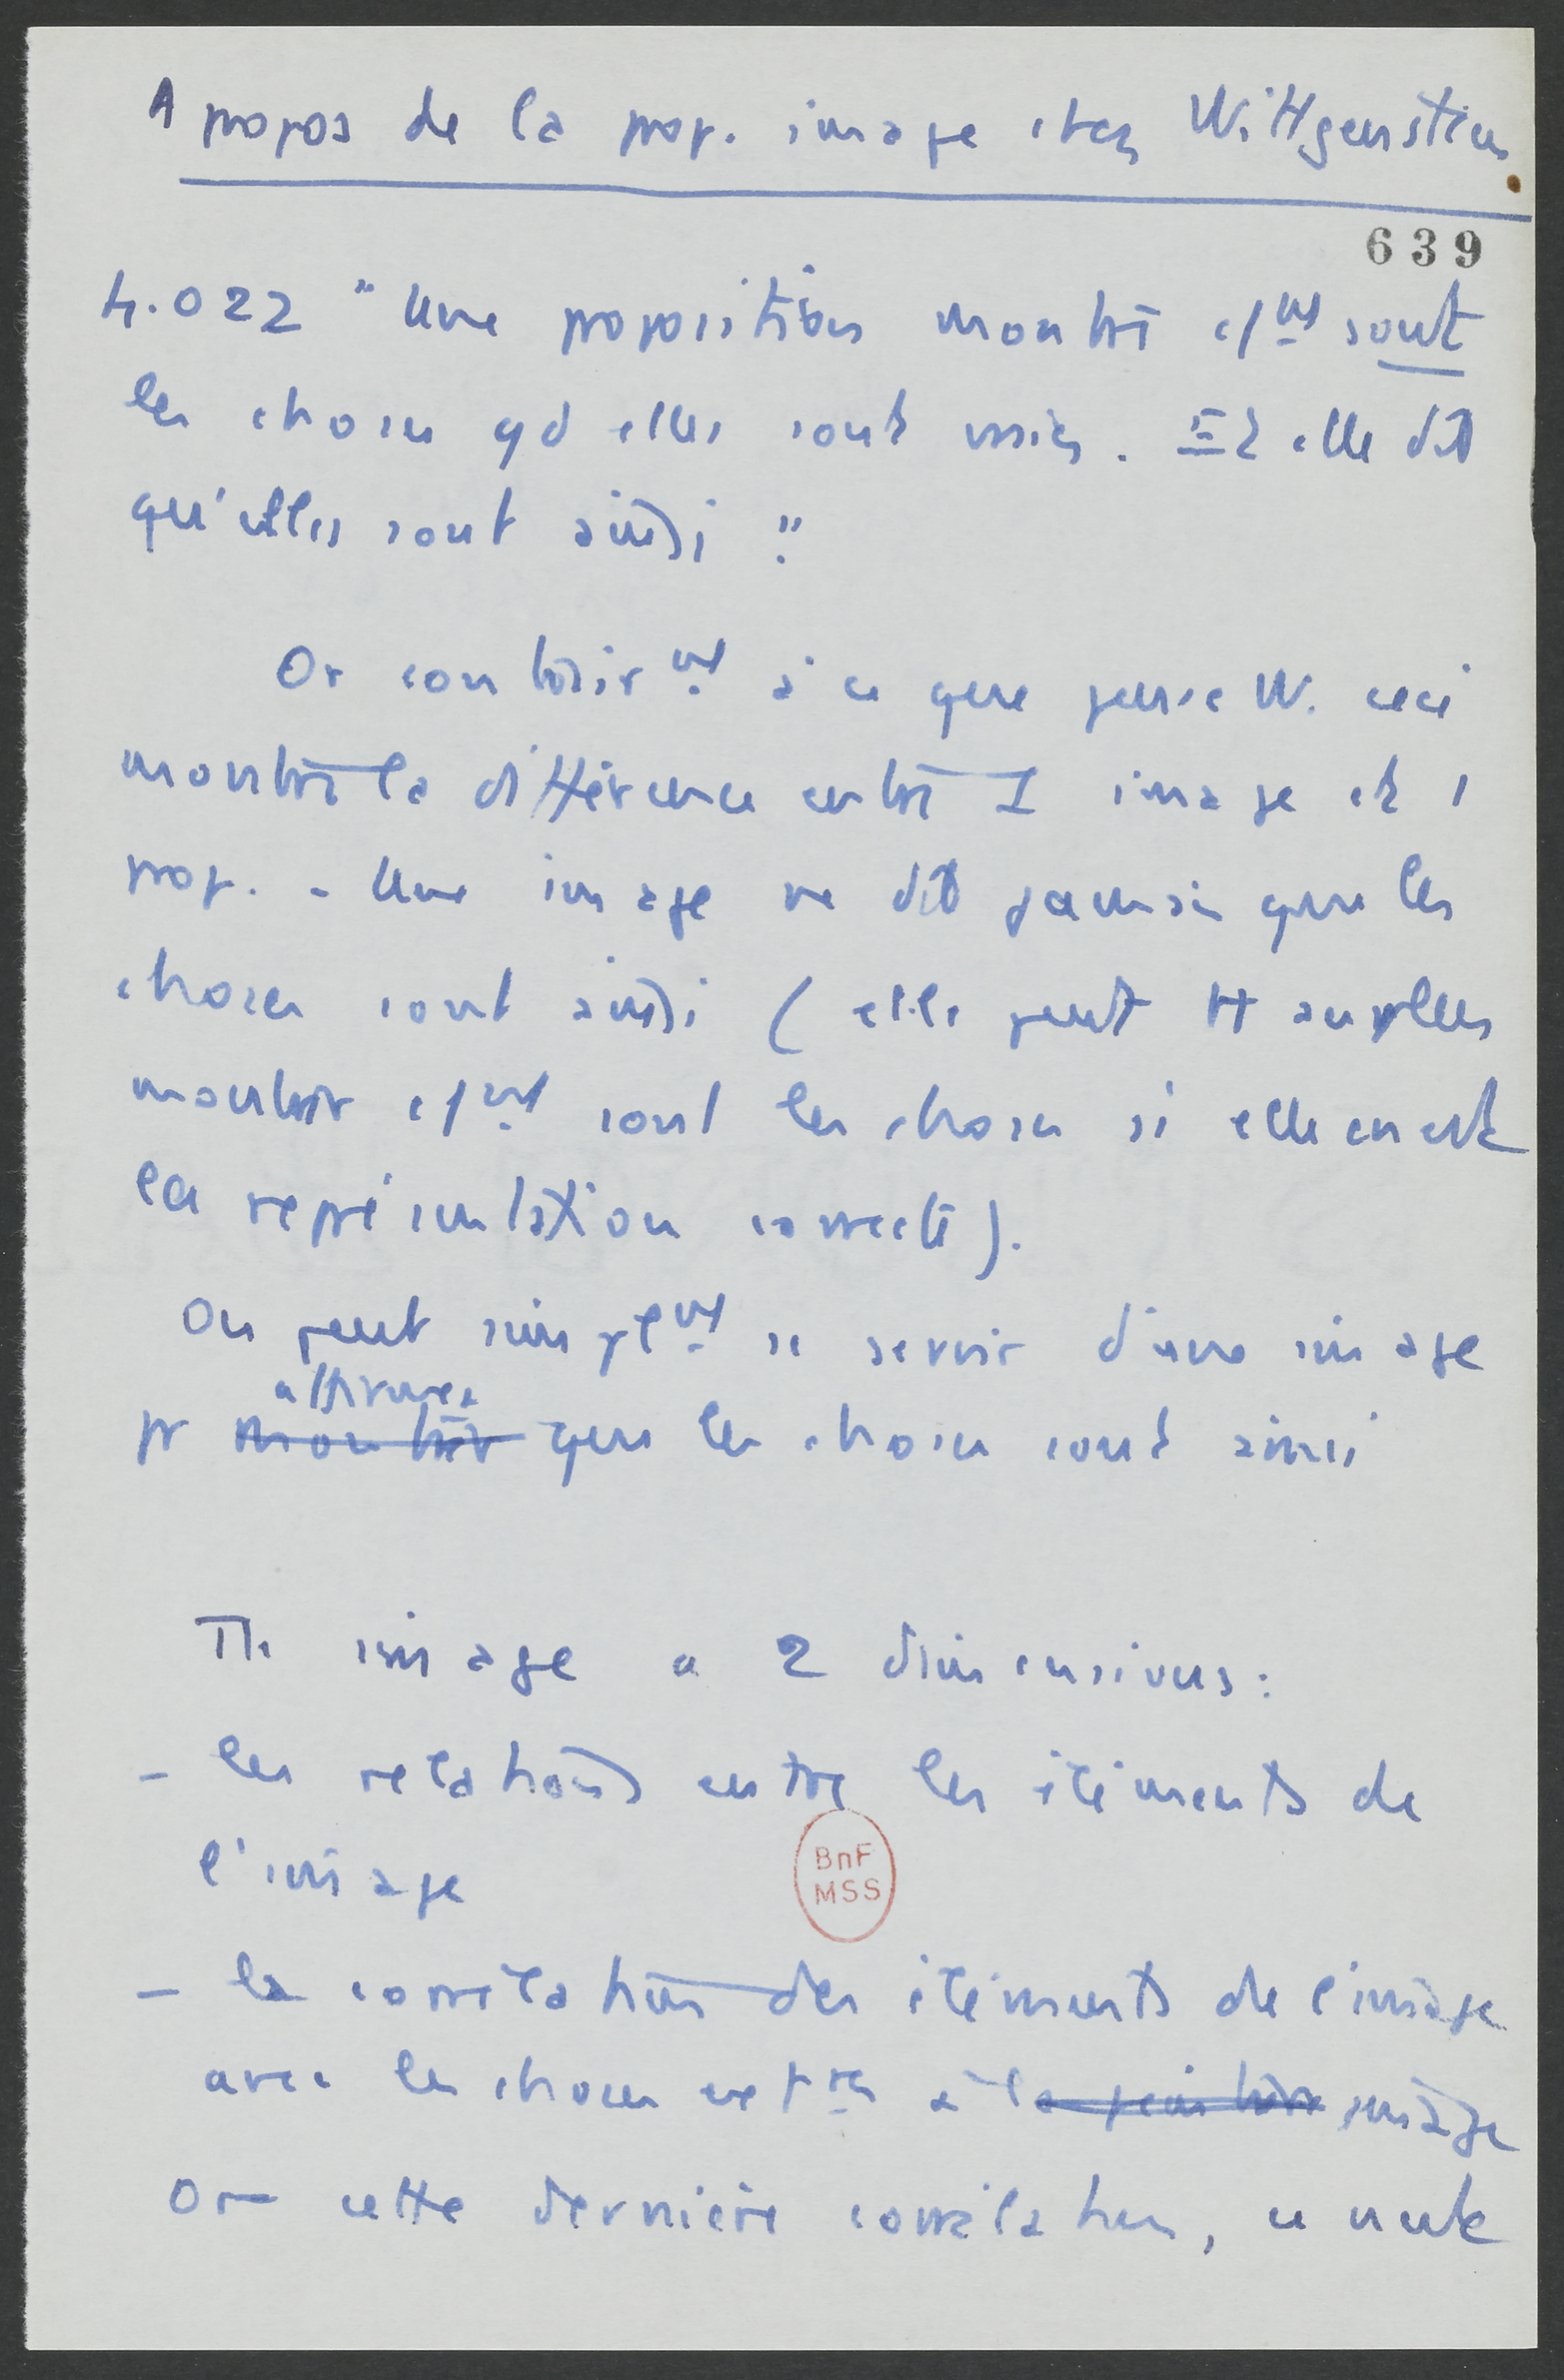 A propos de la prop. image chez Wittgenstein
639
4.022 " Une proposition montre c/mt sont
les choses qd elles sont vraies. Et elle dit
qu'elles sont ainsi ."
Or contrairmt à ce que pense W. ceci
montre la différence entre 1 image et 1
prop. - Une image ne dit jamais que les
choses sont ainsi ( elle peut tt au plus
montrer c/mt sont les choses si elle en est
la représentation correcte ).
On peut simplmt se servir d'une image
affirmer
pr montrer que les choses sont ainsi
Tte image a 2 dimensions :
- les relations entre les éléments de
l'image
BnF
MSS
- la corrélation des éléments de l'image
avec les choses extres à la peinture image
Or cette dernière corrélation, ce n'est